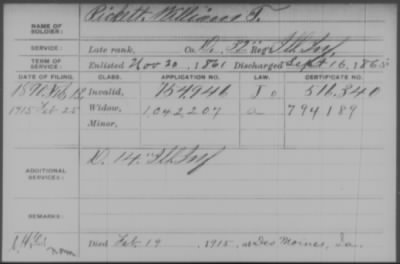 NAME OF SOLDIER: Pickett, William F.
SERVICE: Late rank, Co. 52 Reg't Ill Inf
TERM OF SERVICE: Enlisted Nov 20, 1861 Discharged Sept 16, 1865
DATE OF FILING. CLASS. APPLICATION NO. LAW. CERTIFICATE NO.
Invalid, 754946 518.340
1915 Feb 25 Widow, 1,042,207 a 794189
Minor,
ADDITIONAL SERVICES: D. 14" Ill Inf
REMARKS:
Died Feb 19, 1915, at Des Moines, Ia.